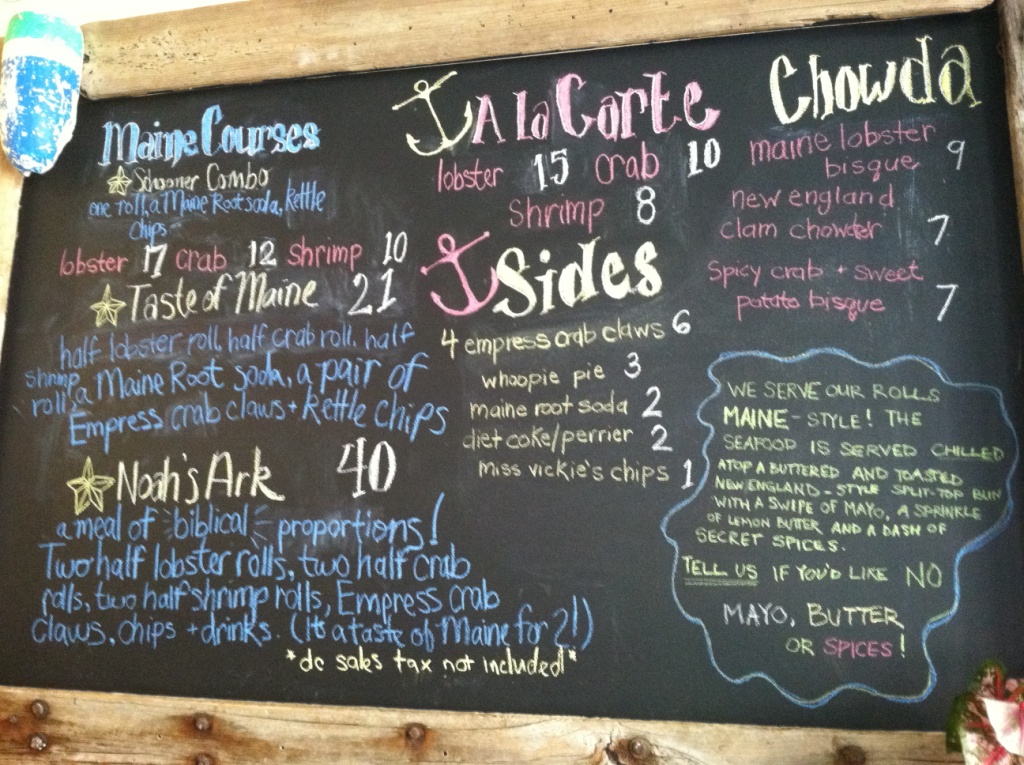 Maine Courses
Schooner Combo
one roll, a Maine Root soda, kettle
chips
lobster 17 crab 12 shrimp 10
Taste of Maine 21
half lobster roll, half crab roll, half
shrimp
roll, a Maine Root soda, a pair of
Empress crab claws + kettle chips
Noah's Ark 40
a meal of biblical proportions!
Two half lobster rolls, two half crab
rolls, two half shrimp rolls, Empress crab
claws, chips + drinks. (It's a taste of Maine for 2!)
*dc sales tax not included!*
A La Carte
lobster 15 crab 10
shrimp 8
Sides
4 empress crab claws 6
whoopie pie 3
maine root soda 2
diet coke/perrier 2
miss vickie's chips 1
Chowda
maine lobster
bisque 9
new england
clam chowder 7
spicy crab + sweet
potato bisque 7
WE SERVE OUR ROLLS
MAINE-STYLE! THE
SEAFOOD IS SERVED CHILLED
ATOP A BUTTERED AND TOASTED
NEW ENGLAND-STYLE SPLIT-TOP BUN
WITH A SWIPE OF MAYO, A SPRINKLE
OF LEMON BUTTER AND A DASH OF
SECRET SPICES.
TELL US IF YOU'D LIKE NO
MAYO, BUTTER
OR SPICES!